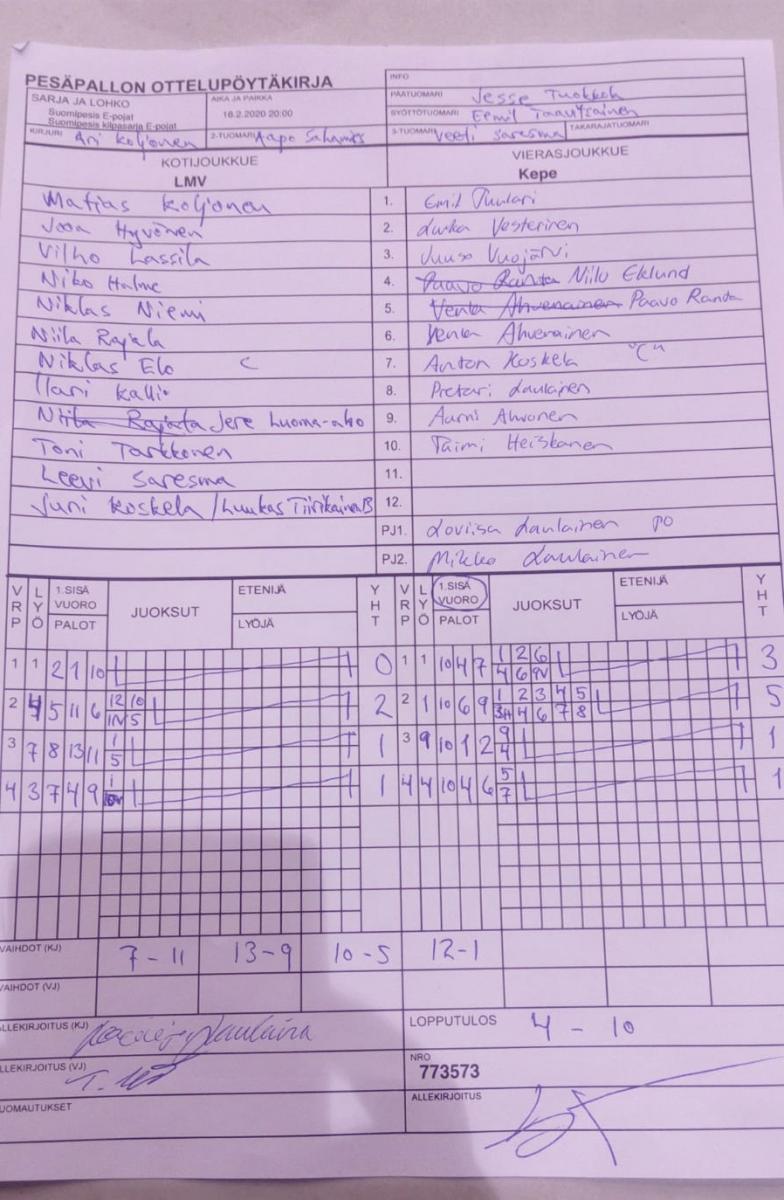 PESÄPALLON OTTELUPÖYTÄKIRJA
INFO
SARJA JA LOHKO
Suomipesis E-pojat
Suomipesis kilpasarja E-pojat
AIKA JA PAIKKA
16.2.2020 20:00
PÄÄTUOMARI Jesse
SYÖTTÖTUOMARI Eemil
KIRJURI Ari Koljonen
2-TUOMARI Aapo
3-TUOMARI Veeti Saresma
TAKARAJATUOMARI
KOTIJOUKKUE
LMV
VIERASJOUKKUE
Kepe
Matias Koljonen 1. Emil
Joona Hyvönen 2. Luka Vesterinen
Vilho Lassila 3. Juuso Vuojärvi
Niko Halme 4. Paavo Ranta Niilo Eklund
Niklas Niemi 5. Venla Ahvenainen Paavo Ranta
Niila Rajala 6. Venla Ahvenainen
Niklas Elo C 7. Anton Koskela "C"
Ilari Kallio 8. Petari Laulainen
Niila Rajala Jere Luoma-aho 9. Aarni Ahvonen
Toni Tarkkonen 10. Taimi Heiskanen
Leevi Saresma 11.
Juri Koskela / Luukas Tiirikainen 12.
PJ1. Loviisa Laulainen PO
PJ2. Mikko Laulainen
VRP LYÖ 1.SISÄ VUORO PALOT JUOKSUT ETENIJÄ LYÖJÄ YHT VRP LYÖ 1.SISÄ VUORO PALOT JUOKSUT ETENIJÄ LYÖJÄ YHT
1 1 2 1 10 0 1 1 10 4 7 1 2 6 3
4 6 9V
2 4 5 11 6 12 10 2 2 1 10 6 9 1 2 3 4 5 5
1V 5 3H 4 6 7 8
3 7 8 13 11 1 1 3 9 10 1 2 9 1
5 4
4 3 7 4 9 1 1 4 4 10 4 6 5 1
7
VAIHDOT (KJ) 7-11 13-9 10-5 12-1
VAIHDOT (VJ)
ALLEKIRJOITUS (KJ)
LOPPUTULOS 4 - 10
ALLEKIRJOITUS (VJ)
NRO
773573
HUOMAUTUKSET
ALLEKIRJOITUS